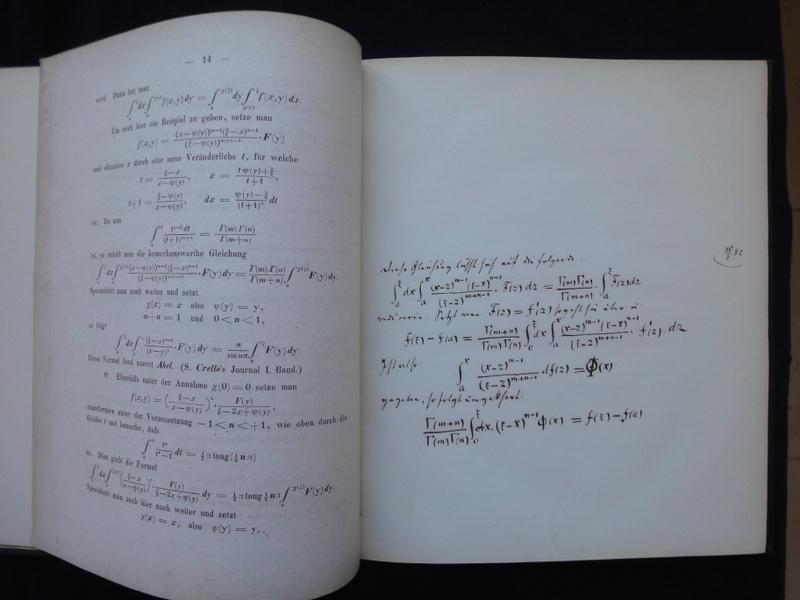 — 14 —
wird. Denn hat man
∫₀^ξ dx ∫₀^χ(x) f(x,y) dy = ∫₀^χ(ξ) dy ∫_ψ(y)^ξ f(x,y) dx.
Um auch hier ein Beispiel zu geben, setze man
f(x,y) = (x−ψ(y))^m−1 (ξ−x)^n−1 / (ξ−ψ(y))^m+n−1 · F(y)
und eliminire x durch eine neue Veränderliche t, für welche
t = (ξ−x)/(x−ψ(y)), x = (tψ(y)+ξ)/(t+1),
t+1 = (ξ−ψ(y))/(x−ψ(y)), dx = (ψ(y)−ξ)/(t+1)² dt
ist. Da nun
∫₀^∞ t^n−1 dt/(t+1)^m+n = Γ(m) Γ(n)/Γ(m+n)
ist, so erhält man die bemerkenswerthe Gleichung
∫₀^ξ dx ∫₀^χ(x) (x−ψ(y))^m−1 (ξ−x)^n−1 / (ξ−ψ(y))^m+n−1 · F(y) dy = Γ(m) Γ(n)/Γ(m+n) ∫₀^χ(ξ) F(y) dy.
Specialisirt man noch weiter und setzt
χ(x) = x also ψ(y) = y,
m+n = 1 und 0 < n < 1,
so folgt
F(y) dy = π/sin nπ ∫₀^ξ F(y) dy.
Diese Formel fand zuerst Abel. (S. Crelle's Journal I. Band.)
Ebenfalls unter der Annahme χ(0) = 0 setze man
f(x,y) = ((ξ−x)/(x−ψ(y)))^n · F(y)/(ξ−2x+ψ(y)),
transformire unter der Voraussetzung −1 < n < +1, wie oben durch die
Größe t und bemerke, daß
∫₀^∞ t^n/(t²−1) dt = ½ π tang (½ n π)
ist. Dies giebt die Formel
∫₀^ξ dx ∫₀^χ(x) ((ξ−x)/(x−ψ(y)))^n · F(y)/(ξ−2x+ψ(y)) dy = ½ π tang ½ n π ∫₀^χ(ξ) F(y) dy.
Specialisirt man auch hier noch weiter und setzt
χ(x) = x, also ψ(y) = y,
82
Diese Gleichung läßt sich auf die folgende:
∫₀^ξ dx ∫_a^x (x−z)^m−1 (ξ−x)^n−1 / (ξ−z)^m+n−1 · F(z) dz = Γ(m) Γ(n)/Γ(m+n) · ∫_a^ξ F(z) dz
Setzt man F(z) = f'(z) so geht sie über in
f(ξ) − f(a) = Γ(m+n)/Γ(m) Γ(n) ∫₀^ξ dx ∫_a^x (x−z)^m−1 (ξ−x)^n−1 / (ξ−z)^m+n−1 · f'(z) dz
Ist also ∫_a^x (x−z)^m−1 / (ξ−z)^m+n−1 df(z) = Φ(x)
gegeben, so folgt umgekehrt:
Γ(m+n)/Γ(m) Γ(n) ∫₀^ξ dx · (ξ−x)^n−1 Φ(x) = f(ξ) − f(a)